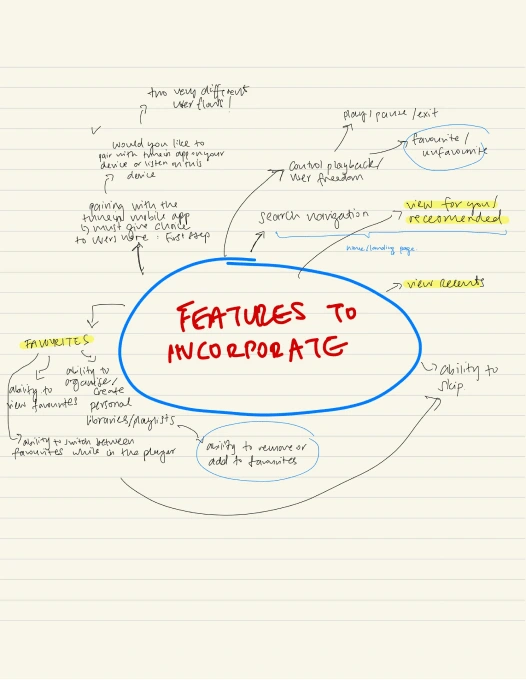 two very different
user flows!
would you like to
pair with tunein app on your
device or listen on this
device
pairing with the
tunein mobile app
↳ must give choice
to users here : First step
play / pause / exit
favourite /
unfavourite
control playback /
user freedom
search navigation
view for you /
recommended
home/landing page.
view recents
FEATURES TO
INCORPORATE
ability to
skip
FAVOURITES
ability to
view favourites
ability to
organise/
create
personal
libraries/playlists
ability to switch between
favourites while in the player
ability to remove or
add to favourites